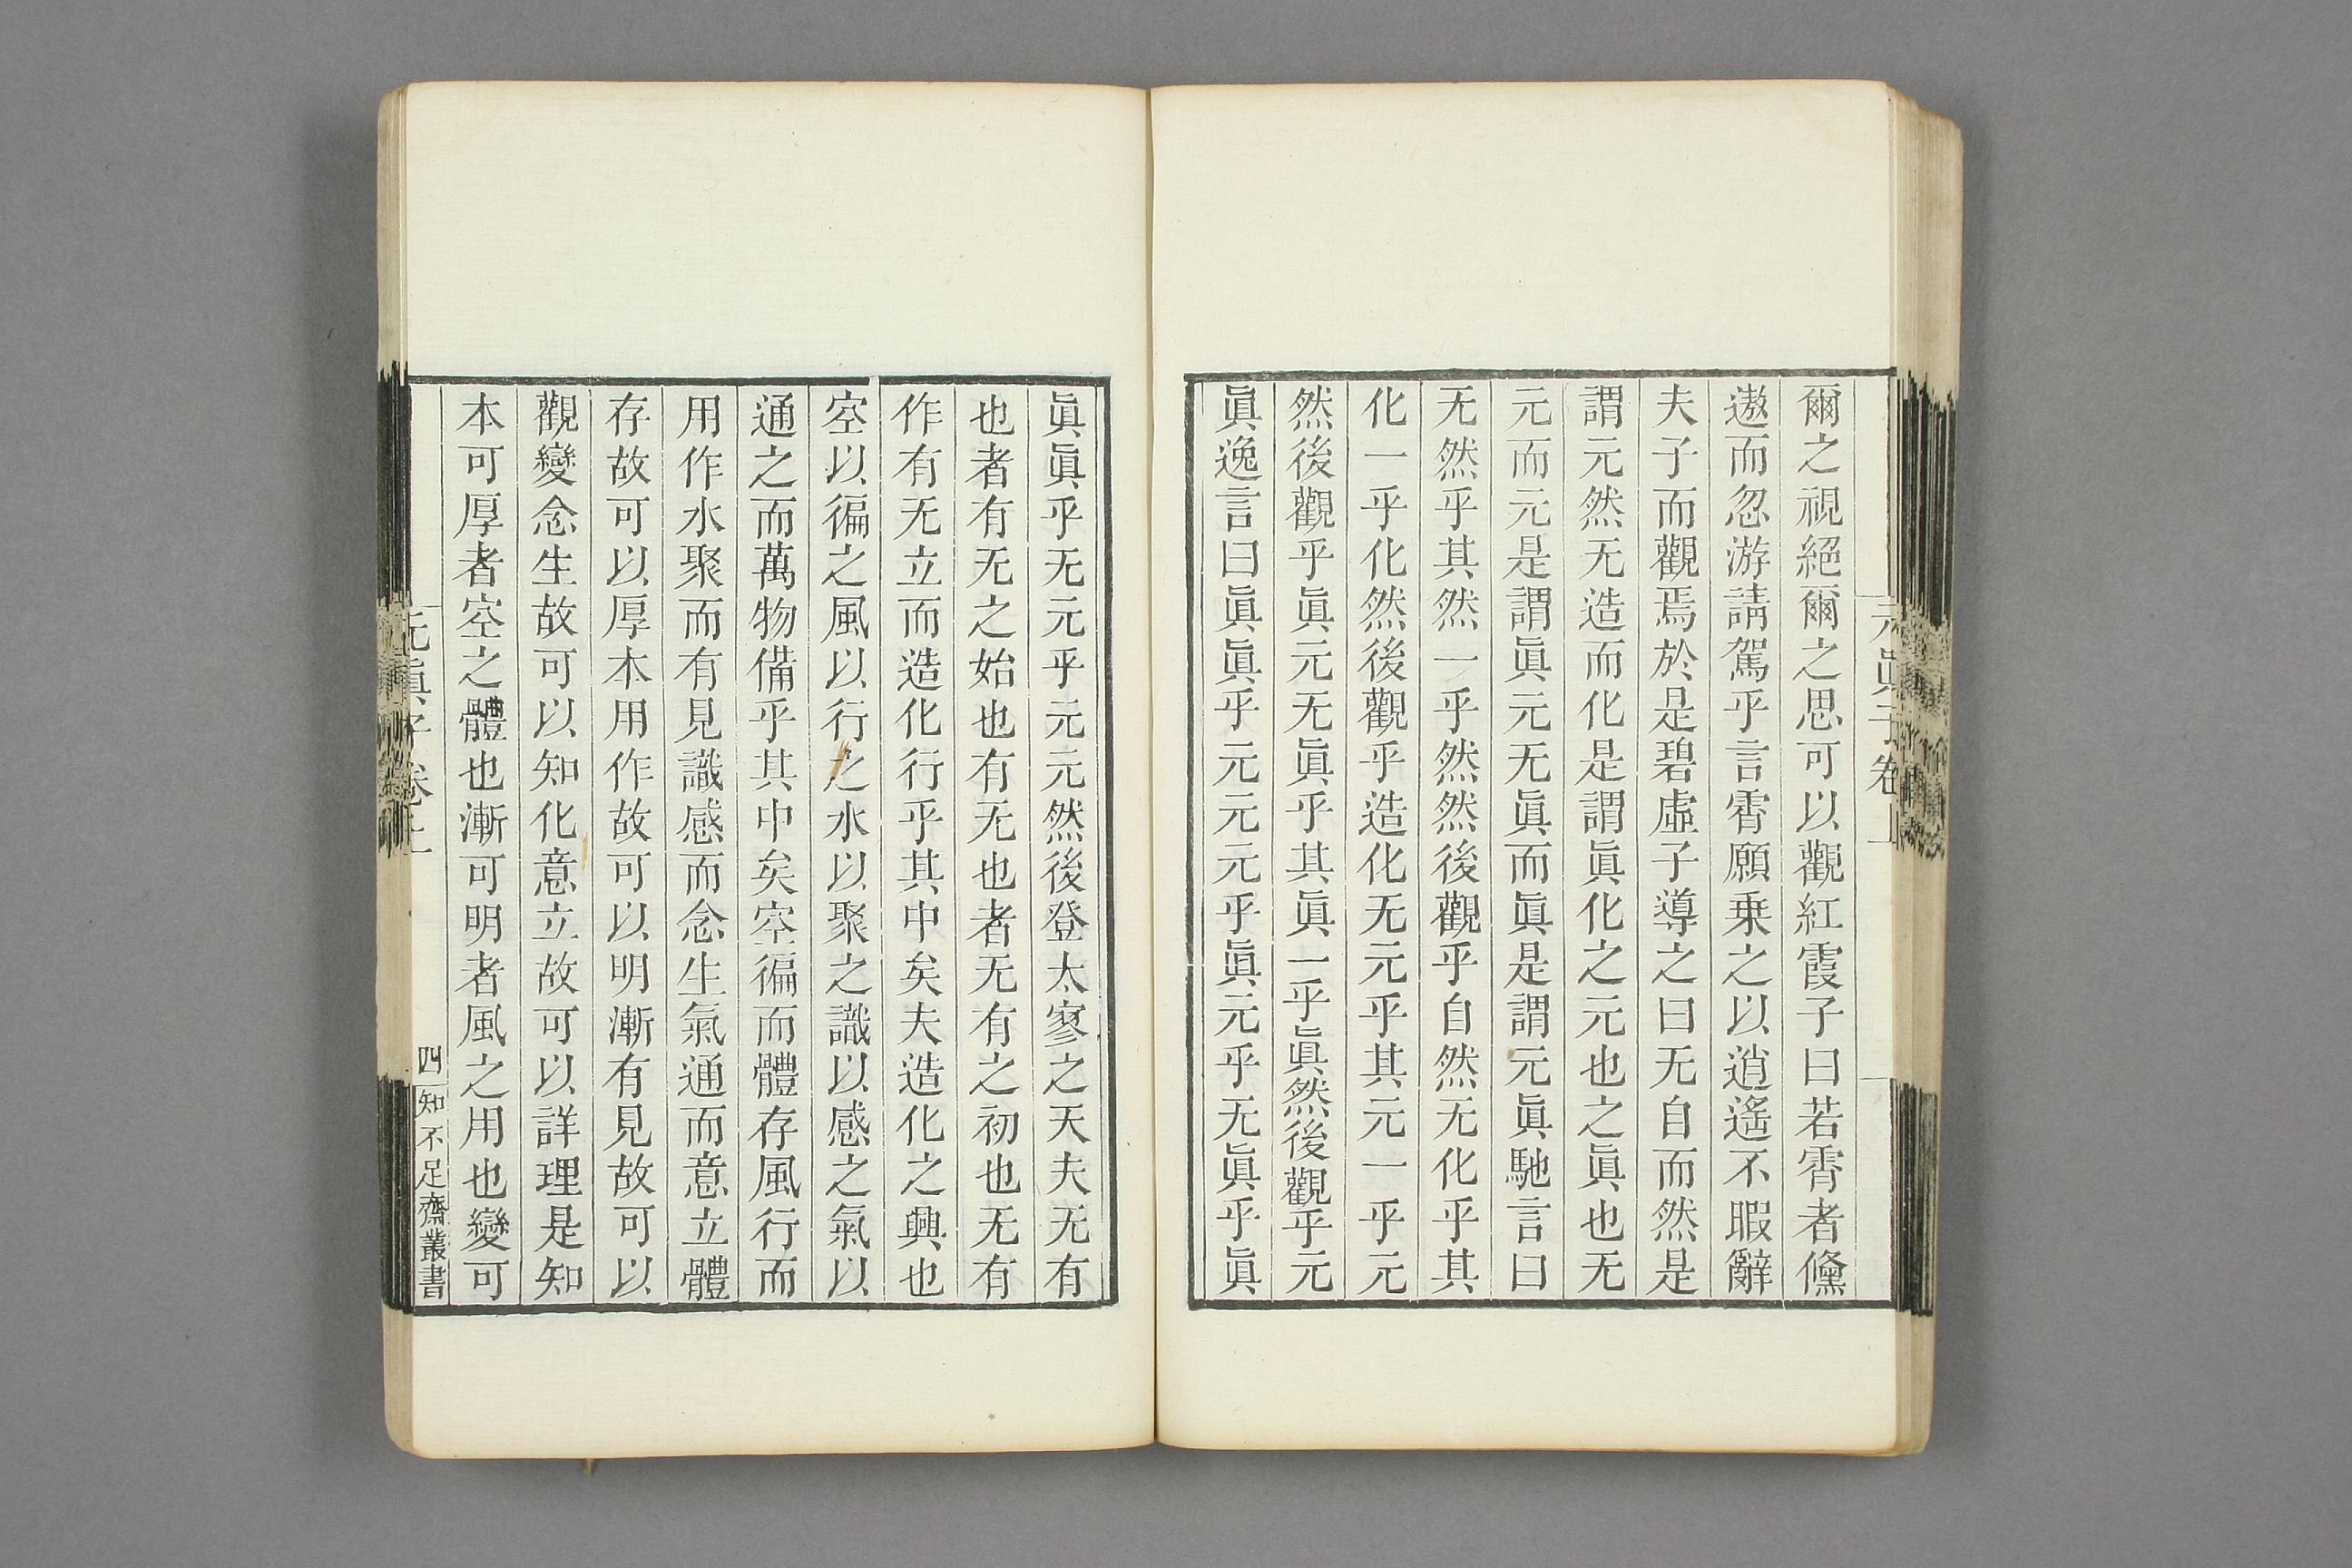 元眞子卷上
爾之視絕爾之思可以觀紅霞子曰若霄者儻
遨而忽游請駕乎言霄願乗之以逍遙不暇辭
夫子而觀焉於是碧虛子導之曰无自而然是
謂元然无造而化是謂眞化之元也之眞也无
元而元是謂眞元无眞而眞是謂元眞馳言曰
无然乎其然一乎然然後觀乎自然无化乎其
化一乎化然後觀乎造化无元乎其元一乎元
然後觀乎眞元无眞乎其眞一乎眞然後觀乎元
眞逸言曰眞眞乎元元元乎眞元乎无眞乎眞
眞眞乎无元乎元元然後登太寥之天夫无有
也者有无之始也有无也者无有之初也无有
作有无立而造化行乎其中矣夫造化之興也
空以徧之風以行之水以聚之識以感之氣以
通之而萬物備乎其中矣空徧而體存風行而
用作水聚而有見識感而念生氣通而意立體
存故可以厚本用作故可以明漸有見故可以
觀變念生故可以知化意立故可以詳理是知
本可厚者空之體也漸可明者風之用也變可
元眞子卷上
四
知不足齋叢書